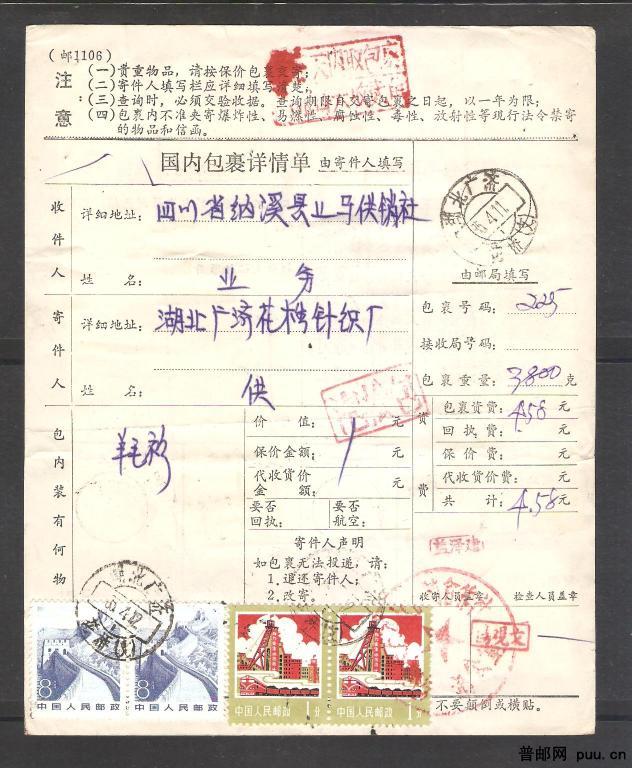 (邮1106)
注意
(一)贵重物品，请按保价包裹交寄；
(二)寄件人填写栏应详细填写清楚；
(三)查询时，必须交验收据，查询期限自交寄包裹之日起，以一年为限；
(四)包裹内不准夹寄爆炸性、易燃性、腐蚀性、毒性、放射性等现行法令禁寄
的物品和信函。
国内包裹详情单 由寄件人填写
收件人
详细地址：四川省纳溪县上马供销社
姓名：业务
寄件人
详细地址：湖北广济花桥针织厂
姓名：供
包内装有何物
羊毛衫
价值：1元
保价金额：元
代收货价
金额：元
要否
回执：
要否
航空：
寄件人声明
如包裹无法投递，请：
1.退还寄件人；
2.改寄：
湖北广济
由邮局填写
包裹号码：225
接收局号码：
包裹重量：3800克
资费
包裹资费：4.58元
回执费：元
保价费：元
代收货价费：元
共计：4.58元
收寄人员盖章：
检查人员盖章
不要颠倒或横贴。
湖北广济
8分
中国人民邮政
8分
中国人民邮政
中国人民邮政 1分
中国人民邮政 1分
普邮网 puu.cn